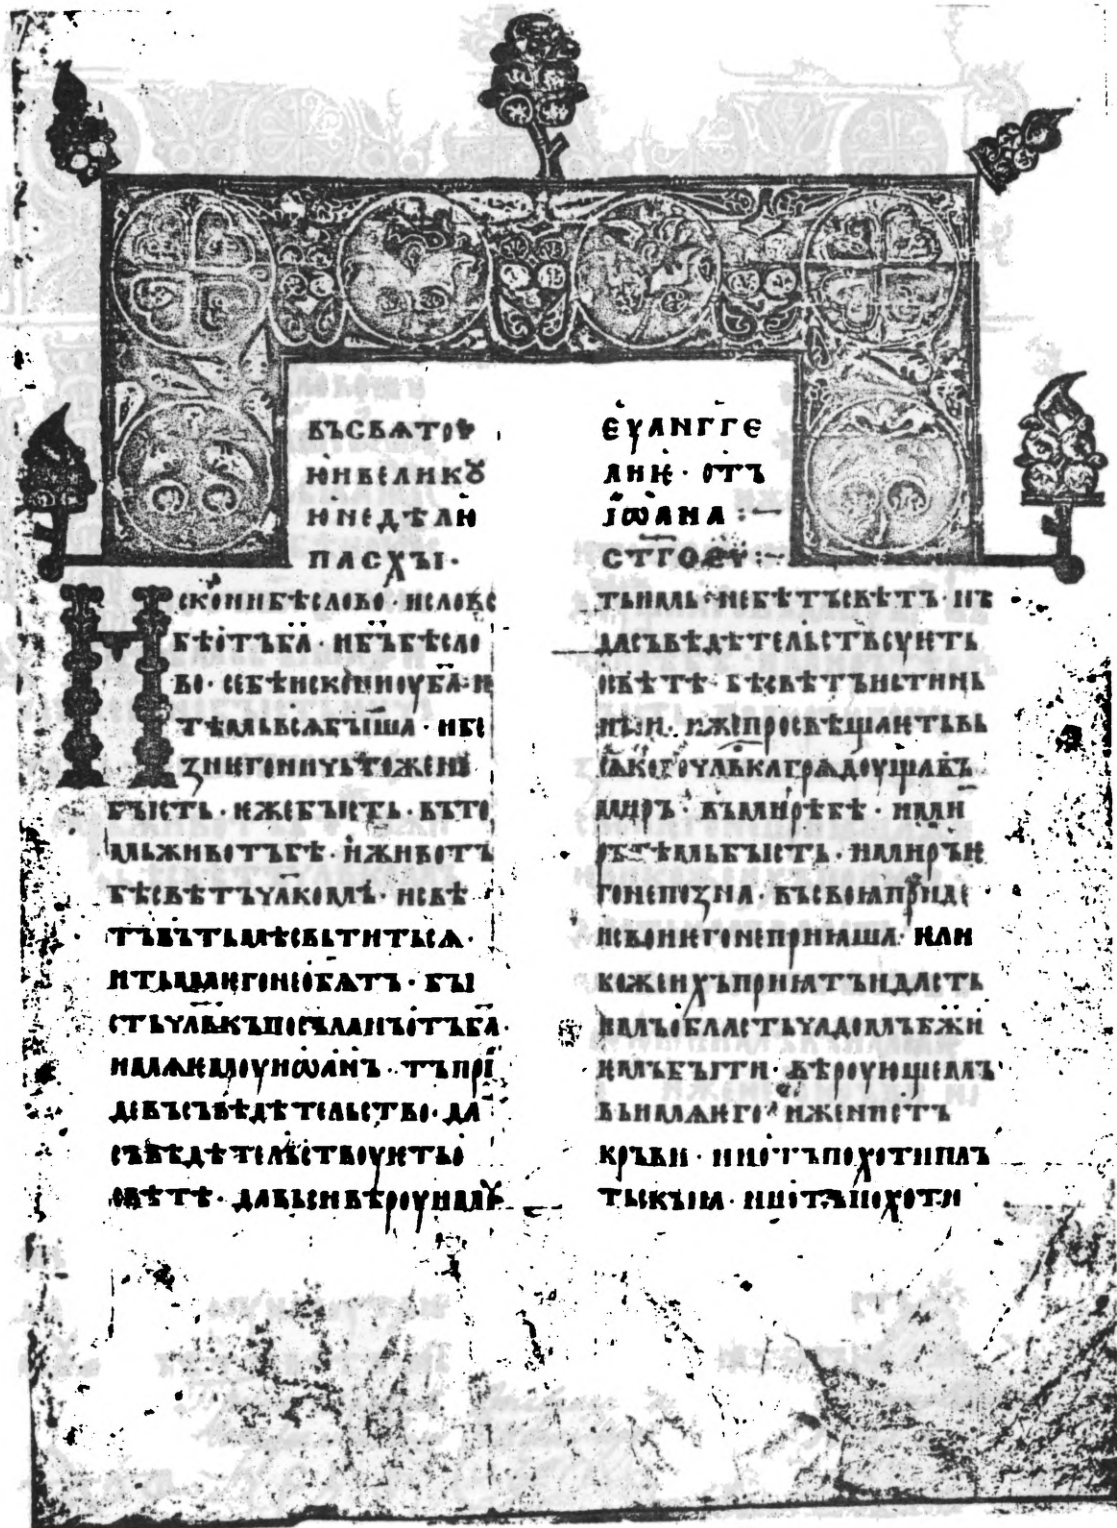 въсвѧтоѵ
юивеликꙋ
юнедѣлю
пасхꙑ·
еѵангге
лиѥ· отъ
іѡана :—
стгоеѵ:—
ИскониБѣслово · ислово
бѣотъба҃ · иб҃ъбѣсло
во· себѣисконииоуба҃· и
тѣмьвсꙗбꙑша · ибе
знигоничьтожене
бꙑсть · ижебꙑсть · въто
мьживотъбѣ · иживотъ
бѣсвѣтъчл҃комъ · исвѣ
тъвътьмѣсвьтитьсѧ·
итьмаѥгонеобѧтъ · бꙑ
стьчл҃вкъпосъланъотъба҃·
имѧѥмоуиѡанъ · тъпрі
девъсъвѣдѣтельство· да
съвѣдѣтельствоуѥтьо
свѣтѣ · давьсивѣроуимоу
тьимь· небѣтъсвѣтъ · нъ
дасъвѣдѣтельствоуѥть
освѣтѣ· бѣсвѣтъистинь
нꙑи · ижепросвѣщаѥтьвь
сꙗкогочл҃вкагрѧдоущавъ
миръ · въмирѣбѣ · ими
рътѣмьбꙑсть · имиръѥ
гонепозна · въсвоꙗприде
исвоиѥгонепринꙗша · или
кожеихъприꙗтъидасть
имъобластьчадомъбж҃и
имъбꙑти · вѣроующемъ
въимѧѥго · иженеотъ
кръви · ниотъпохотипльъ
тьскꙑꙗ · ниотъпохоти